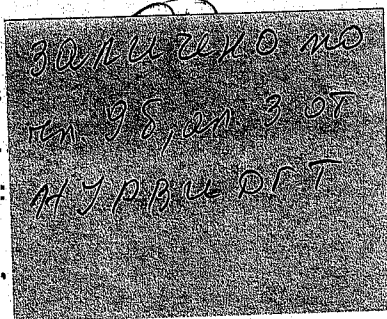 заличено по
чл 9б, ал 3 от
НУРВИДГТ